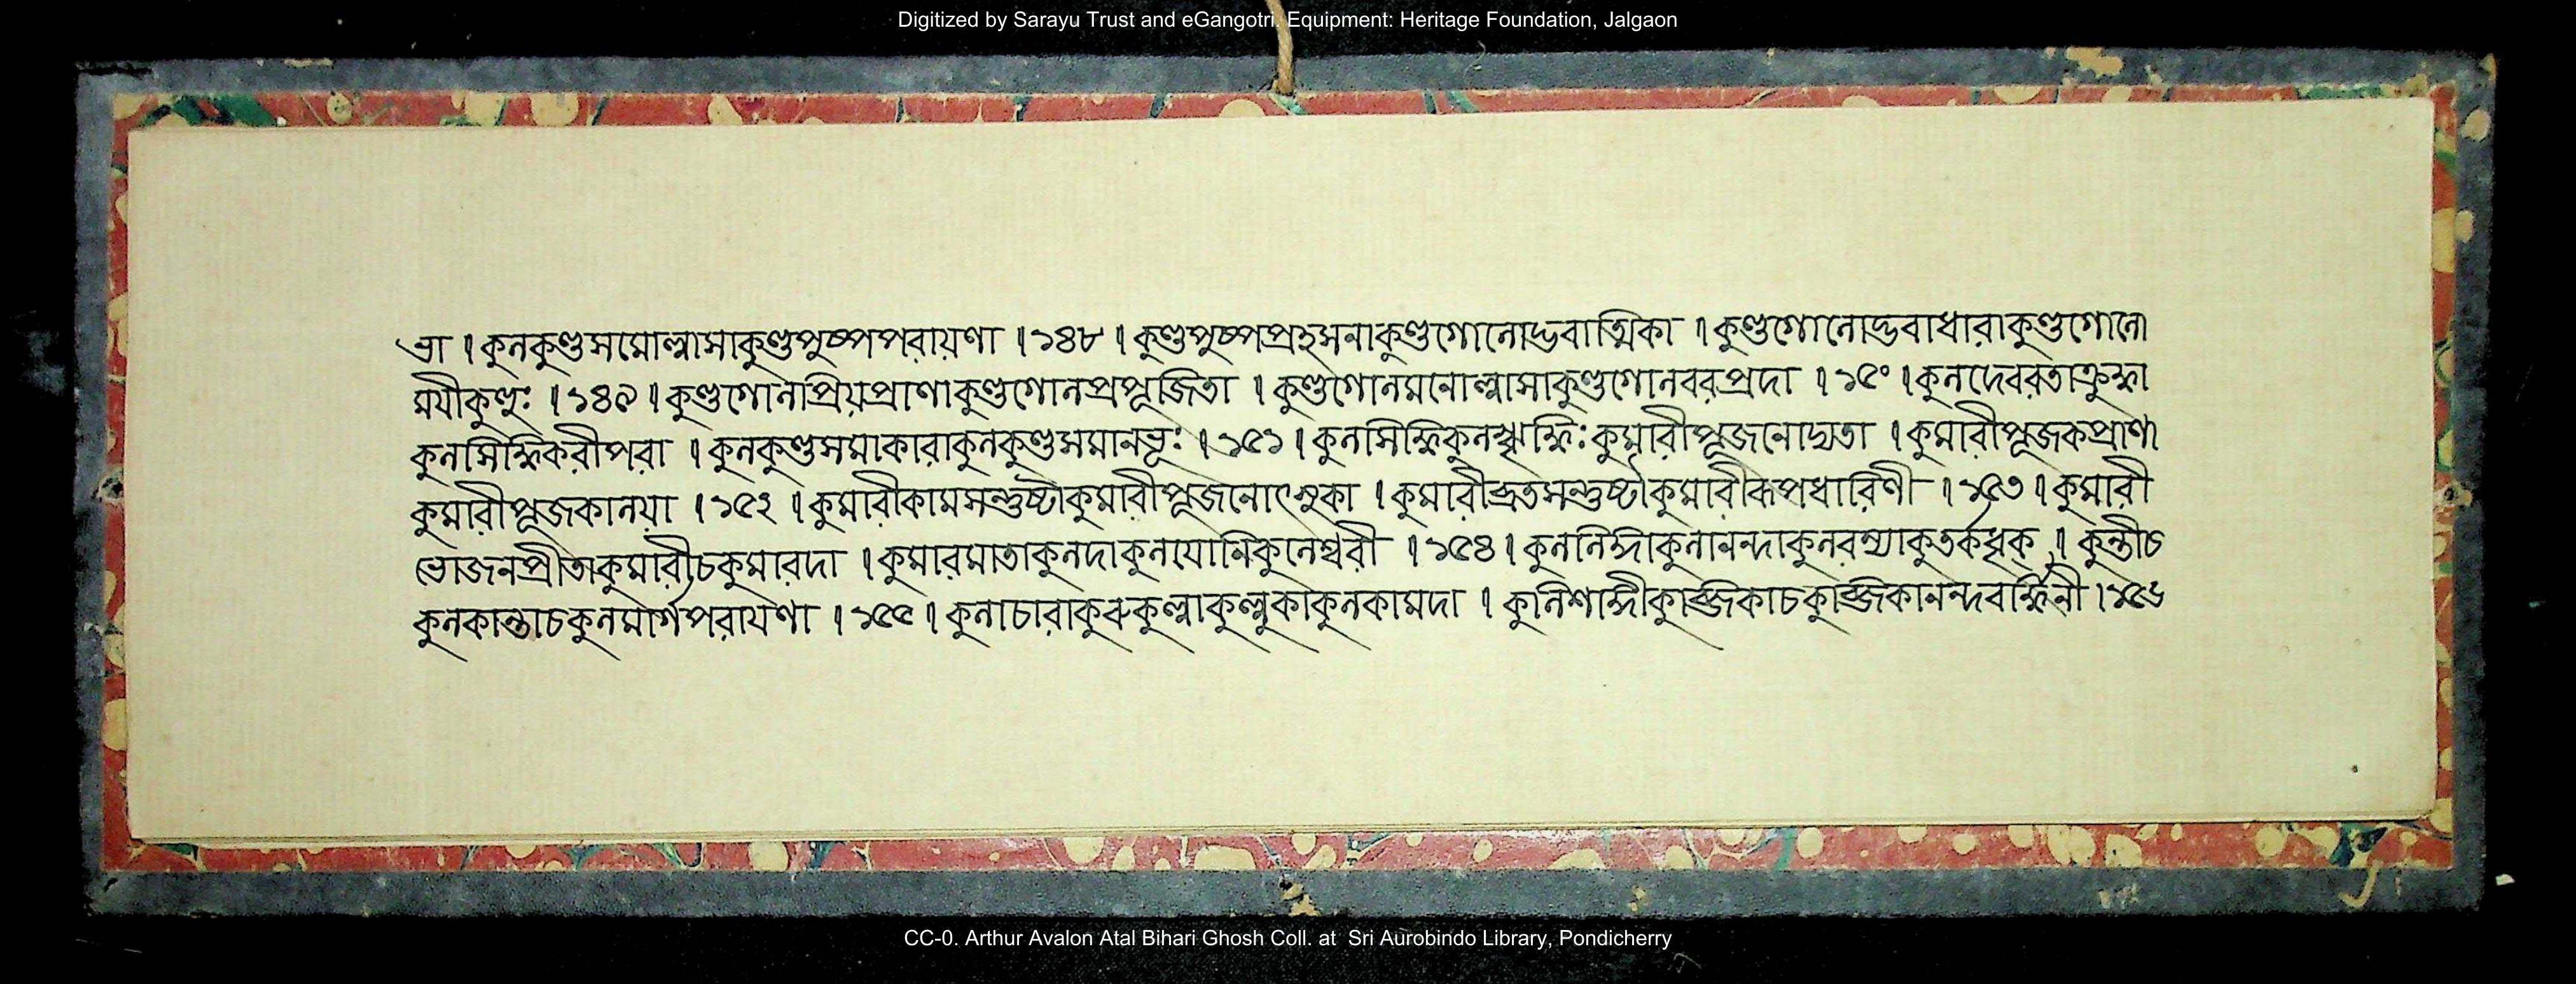 Digitized by Sarayu Trust and eGangotri. Equipment: Heritage Foundation, Jalgaon
ভা । কুলকুণ্ডসমোল্লাসাকুণ্ডপুষ্পপরায়ণা । ১৪৮ । কুণ্ডপুষ্পপ্রহসনাকুণ্ডগোলোদ্ভবাত্মিকা । কুণ্ডগোলোদ্ভবাধারাকুণ্ডগোলো
ময়ীকুণ্হুঃ । ১৪৯ । কুণ্ডগোলাপ্রিয়প্রাণাকুণ্ডগোলপ্রপূজিতা । কুণ্ডগোলমনোল্লাসাকুণ্ডগোলবরপ্রদা । ১৫০ । কুলদেবরতাক্রুদ্ধা
কুলসিদ্ধিকরীপরা । কুলকুণ্ডসমাকারাকুলকুণ্ডসমানভূঃ । ১৫১ । কুলসিদ্ধিকুলঋদ্ধিঃকুমারীপূজনোদ্যতা । কুমারীপূজকপ্রাণা
কুমারীপূজকালয়া । ১৫২ । কুমারীকামসন্তুষ্টাকুমারীপূজনোৎসুকা । কুমারীব্রতসন্তুষ্টাকুমারীরূপধারিণী । ১৫৩ । কুমারী
ভোজনপ্রীতাকুমারীচকুমারদা । কুমারমাতাকুলদাকুলযোনিকুলেশ্বরী । ১৫৪ । কুললিঙ্গাকুলানন্দাকুলরম্যাকুতর্কধৃক্ । কুন্তীচ
কুলকান্তাচকুলমার্গপরায়ণা । ১৫৫ । কুলাচারাকুরুকুল্লাকুল্লুকাকুলকামদা । কুলিশাঙ্গীকুব্জিকাচকুব্জিকানন্দবর্দ্ধিনী । ১৫৬
CC-0. Arthur Avalon Atal Bihari Ghosh Coll. at Sri Aurobindo Library, Pondicherry